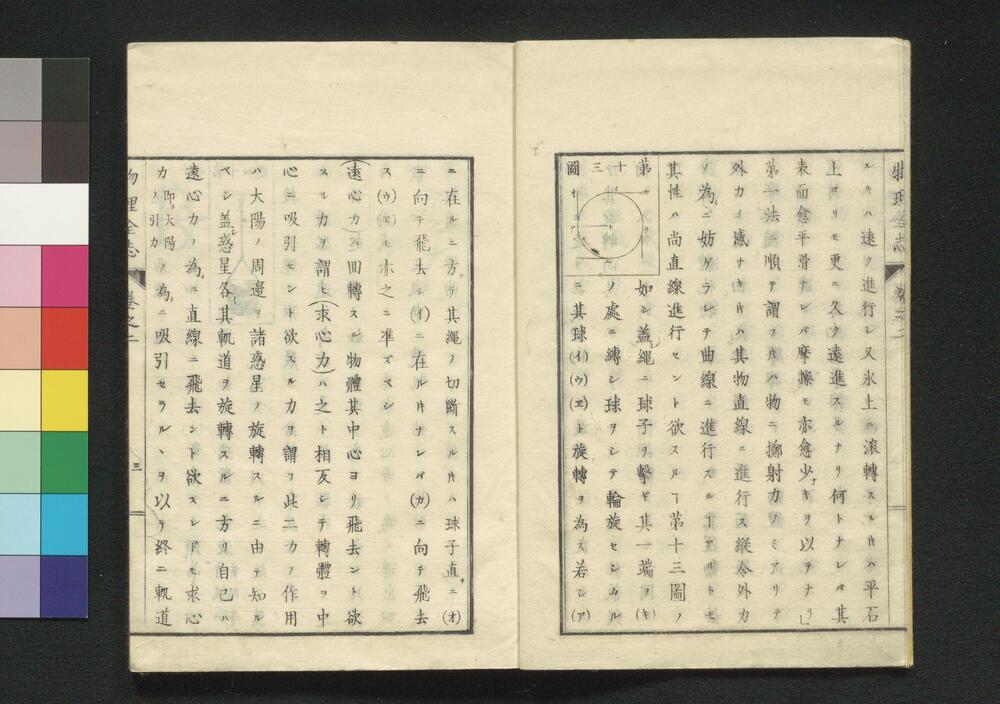 ルキハ遠ク進行シ又氷上ニ滚轉スルキハ平石
上ヨリモ更ニ久ク遠進スルナリ何トナレバ其
表面愈平骨ナレバ摩擦モ亦愈少キヲ以テナリ」
第一法ニ順テ謂フキハ物ニ擲射力ノミアリテ
外力ノ感ナキキハ其物直線ニ進行ス縱令外力
ノ為ニ妨ゲラレテ曲線ニ進行スルヿアリトモ
其性ハ尚直線進行セント欲スルヿ第十三圖ノ
第十三圖
如シ盖繩ニ球子ヲ擊ギ其一端ヲ(キ)
ノ處ニ縛シ球ヲシテ輪旋セシムル
ニ其球(イ)(ウ)(ヱ)ト旋轉ヲ為ス若シ(ア)
ニ在ルニ方リ其繩ノ切斷スルキハ球子直ニ(オ)
ニ向テ飛去シ(イ)ニ在ルキナレバ(カ)ニ向テ飛去
ス(ウ)(ヱ)モ亦之ニ準ズベシ
(遠心力)ハ回轉スル物體其中心ヨリ飛去ント欲
スル力ヲ謂ヒ(求心力)ハ之ト相反シテ轉體ヲ中
心ニ吸引セント欲スル力ヲ謂フ此二力ノ作用
ハ大陽ノ周邊ヲ諸惑星ノ旋轉スルニ由テ知ル
ベシ盖惑星各其軌道ヲ旋轉スルニ方リ自己ハ
遠心力ノ為ニ直線ニ飛去ント欲スレドモ求心
力即大陽ノ引力ノ為ニ吸引セラルヽヲ以テ終ニ軌道
物理全志
卷之二
三